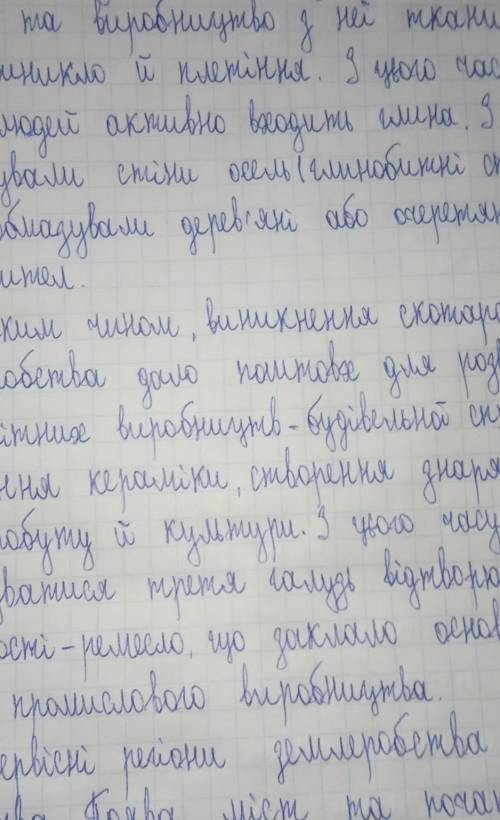 та виробництво з неї ткани
иникло й плетіння. З цього час
людей активно входить глина. З
ували стіни осель (глинобитні ст
обмазували дерев'яні або очеретян
ител.
ким чином, виникнення скотар
обства дало поштовх для розв
ітних виробництв - будівельної сп
ння кераміки, створення знаря
побуту й культури. З цього часу
ватися третя галузь відтворю
ості - ремесло, що заклало основ
промислового виробництва.
ервісні регіони землеробства
Поява міст та почат